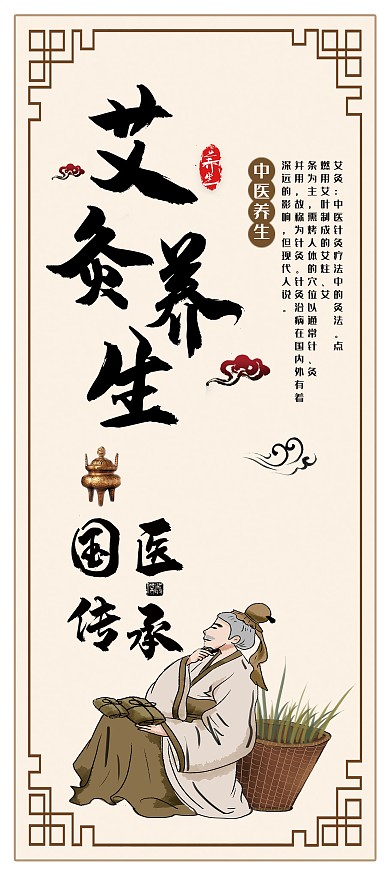 艾灸养生
养生
中医养生
艾灸：中医针灸疗法中的灸法。点
燃用艾叶制成的艾炷、艾
条为主，熏烤人体的穴位以通常针、灸
并用，故称为针灸。针灸治病在国内外有着
深远的影响，但现代人说。
国医
传承